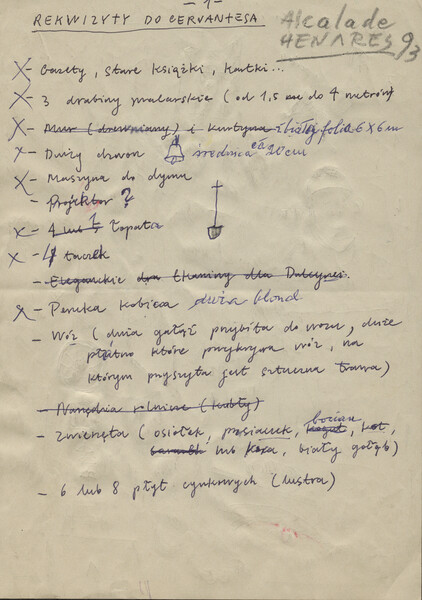 - 1 -
REKWIZYTY DO CERVANTESA
Alcala de
HENARES 93
X - Gazety, stare książki, kartki...
X - 3 drabiny malarskie (od 1,5 m do 4 metrów)
X - Mur (drewniany) i kurtyna z białej folia 6x6m
X - Duży dzwon średnica ca 20cm
X - Maszyna do dymu
- Projektor ?
X - 4 lub 1 łopata
X - taczek
- Eleganckie tkaniny dla Dulcynei
X - Peruka kobieca duża blond
- Wóz (duża gałąź przybita do wozu, duże
płótno które przykrywa wóz, na
którym przyszyta jest sztuczna trawa)
- Narzędzia rolnicze (kubły)
- Zwierzęta (osiołek, prosiaczek, kogut, bocian, kot,
lub koza, biały gołąb)
- 6 lub 8 płyt cynkowych (lustra)